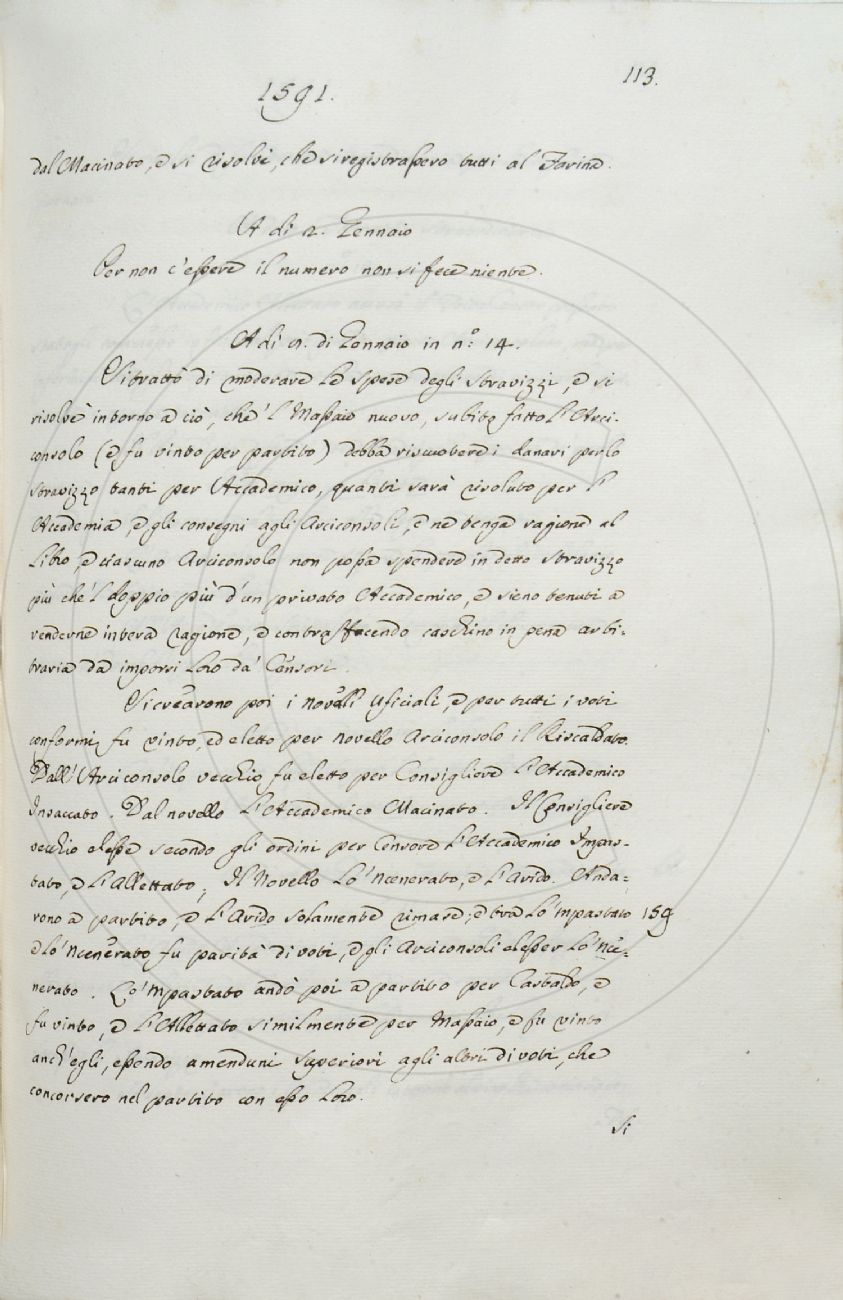 113.
1591.
dal Macinato, e si risolvè, che si registrassero tutti al Farina.
A dì 2. Gennaio
Per non c'essere il numero non si fece niente.
A dì 9. di Gennaio in n.º 14.
Si trattò di moderare le spese degli stravizzi, e si
risolvè intorno a ciò, che 'l Massaio nuovo, subito fatto l'Arci-
consolo (e fu vinto per partito) debba riscuotere i danari per lo
stravizzo tanti per Accademico, quanti sarà risoluto per l'
Accademia, e gli consegni agli Arciconsoli, e ne tenga ragione al
Libro, e ciascuno Arciconsolo non possa spendere in detto stravizzo
più che 'l doppio più d'un privato Accademico, e sieno tenuti a
renderne intera ragione, e contraffacendo caschino in pena arbi-
traria da imporsi loro da' Censori.
Si crearono poi i novelli Uficiali, e per tutti i voti
conformi fu vinto, ed eletto per novello Arciconsolo il Riscaldato.
Dall'Arciconsolo vecchio fu eletto per Consigliere l'Accademico
Insaccato. Dal novello l'Accademico Macinato. Il Consigliere
vecchio elesse secondo gli ordini per Censore l'Accademico Impas-
tato, e l'Allettato; Il Novello lo 'Ncenerato, e l'Arido. Anda-
rono a partito, e l'Arido solamente rimase; e tra lo 'mpastato 159
e lo 'Ncenerato fu parità di voti, e gli Arciconsoli elesser lo 'Nce-
nerato. Lo 'Mpastato andò poi a partito per Castaldo, e
fu vinto, e l'Allettato similmente per Massaio, e fu vinto
anch'egli, essendo amenduni superiori agli altri di voti, che
concorsero nel partito con esso loro.
Si